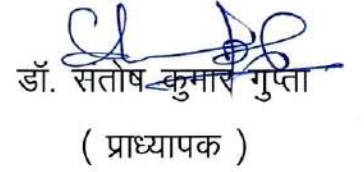 डॉ. सतोष कुमार गुप्ता
( प्राध्यापक )